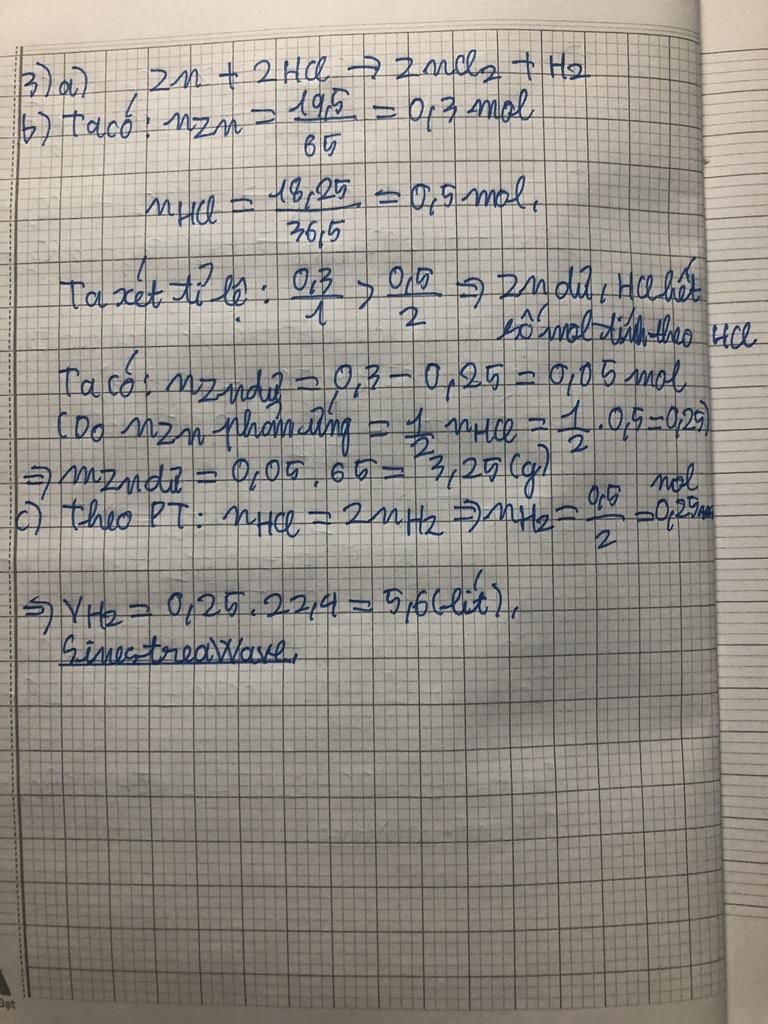 3) a) , Zn + 2HCl → ZnCl₂ + H₂
b) Ta có: nZn = 19,5/65 = 0,3 mol
nHCl = 18,25/36,5 = 0,5 mol.
Ta xét tỉ lệ: 0,3/1 > 0,5/2 ⇒ Zn dư, HCl hết
số mol tính theo HCl
Ta có: nZn dư = 0,3 - 0,25 = 0,05 mol
(Do nZn phản ứng = 1/2 nHCl = 1/2 . 0,5 = 0,25)
⇒ mZn dư = 0,05 . 65 = 3,25 (g)
c) theo PT: nHCl = 2nH₂ ⇒ nH₂ = 0,5/2 = 0,25 mol
⇒ VH₂ = 0,25 . 22,4 = 5,6 (lít).
SinestreaWave.
Đạt